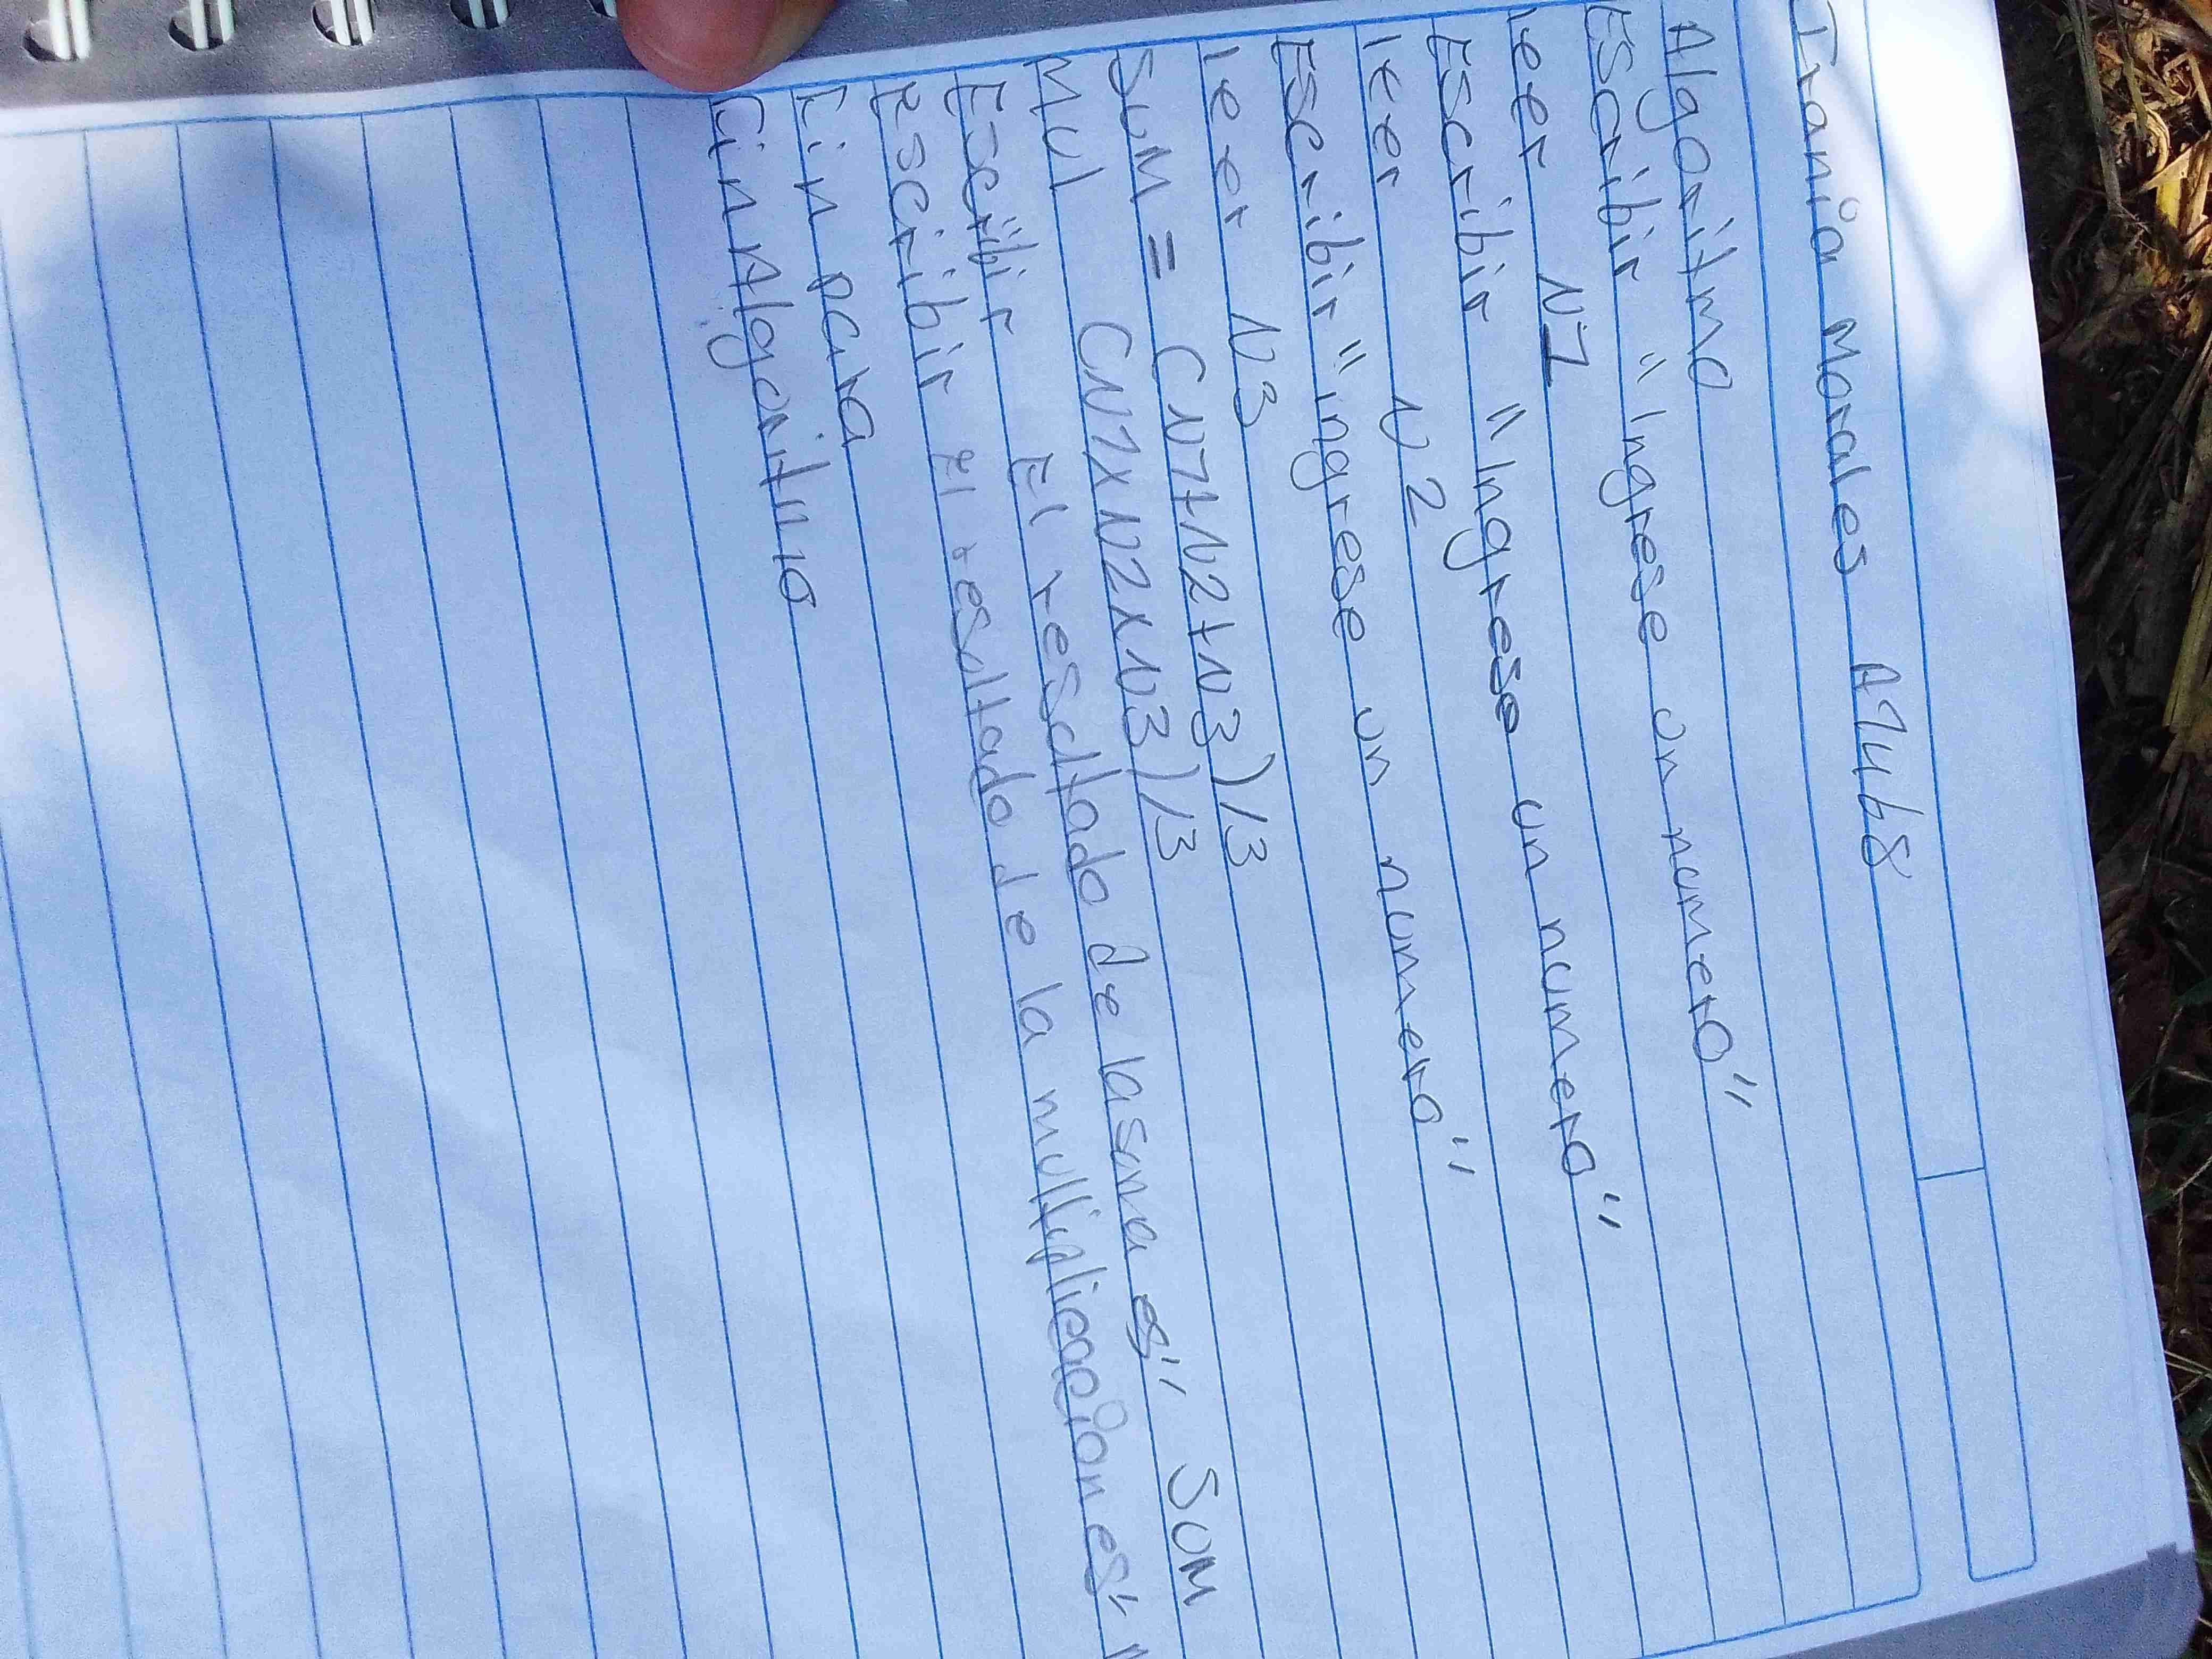 Irania Morales A7468
Algoritmo
Escribir "Ingrese un numero"
leer N1
Escribir "Ingrese un numero"
leer N2
Escribir "ingrese un numero"
leer N3
Sum = (N1+N2+N3)/3
Mul (N1xN2xN3)/3
Escribir El resultado de la suma es", Sum
Escribir El resultado de la multiplicacion es",
Fin para
Fin Algoritmo